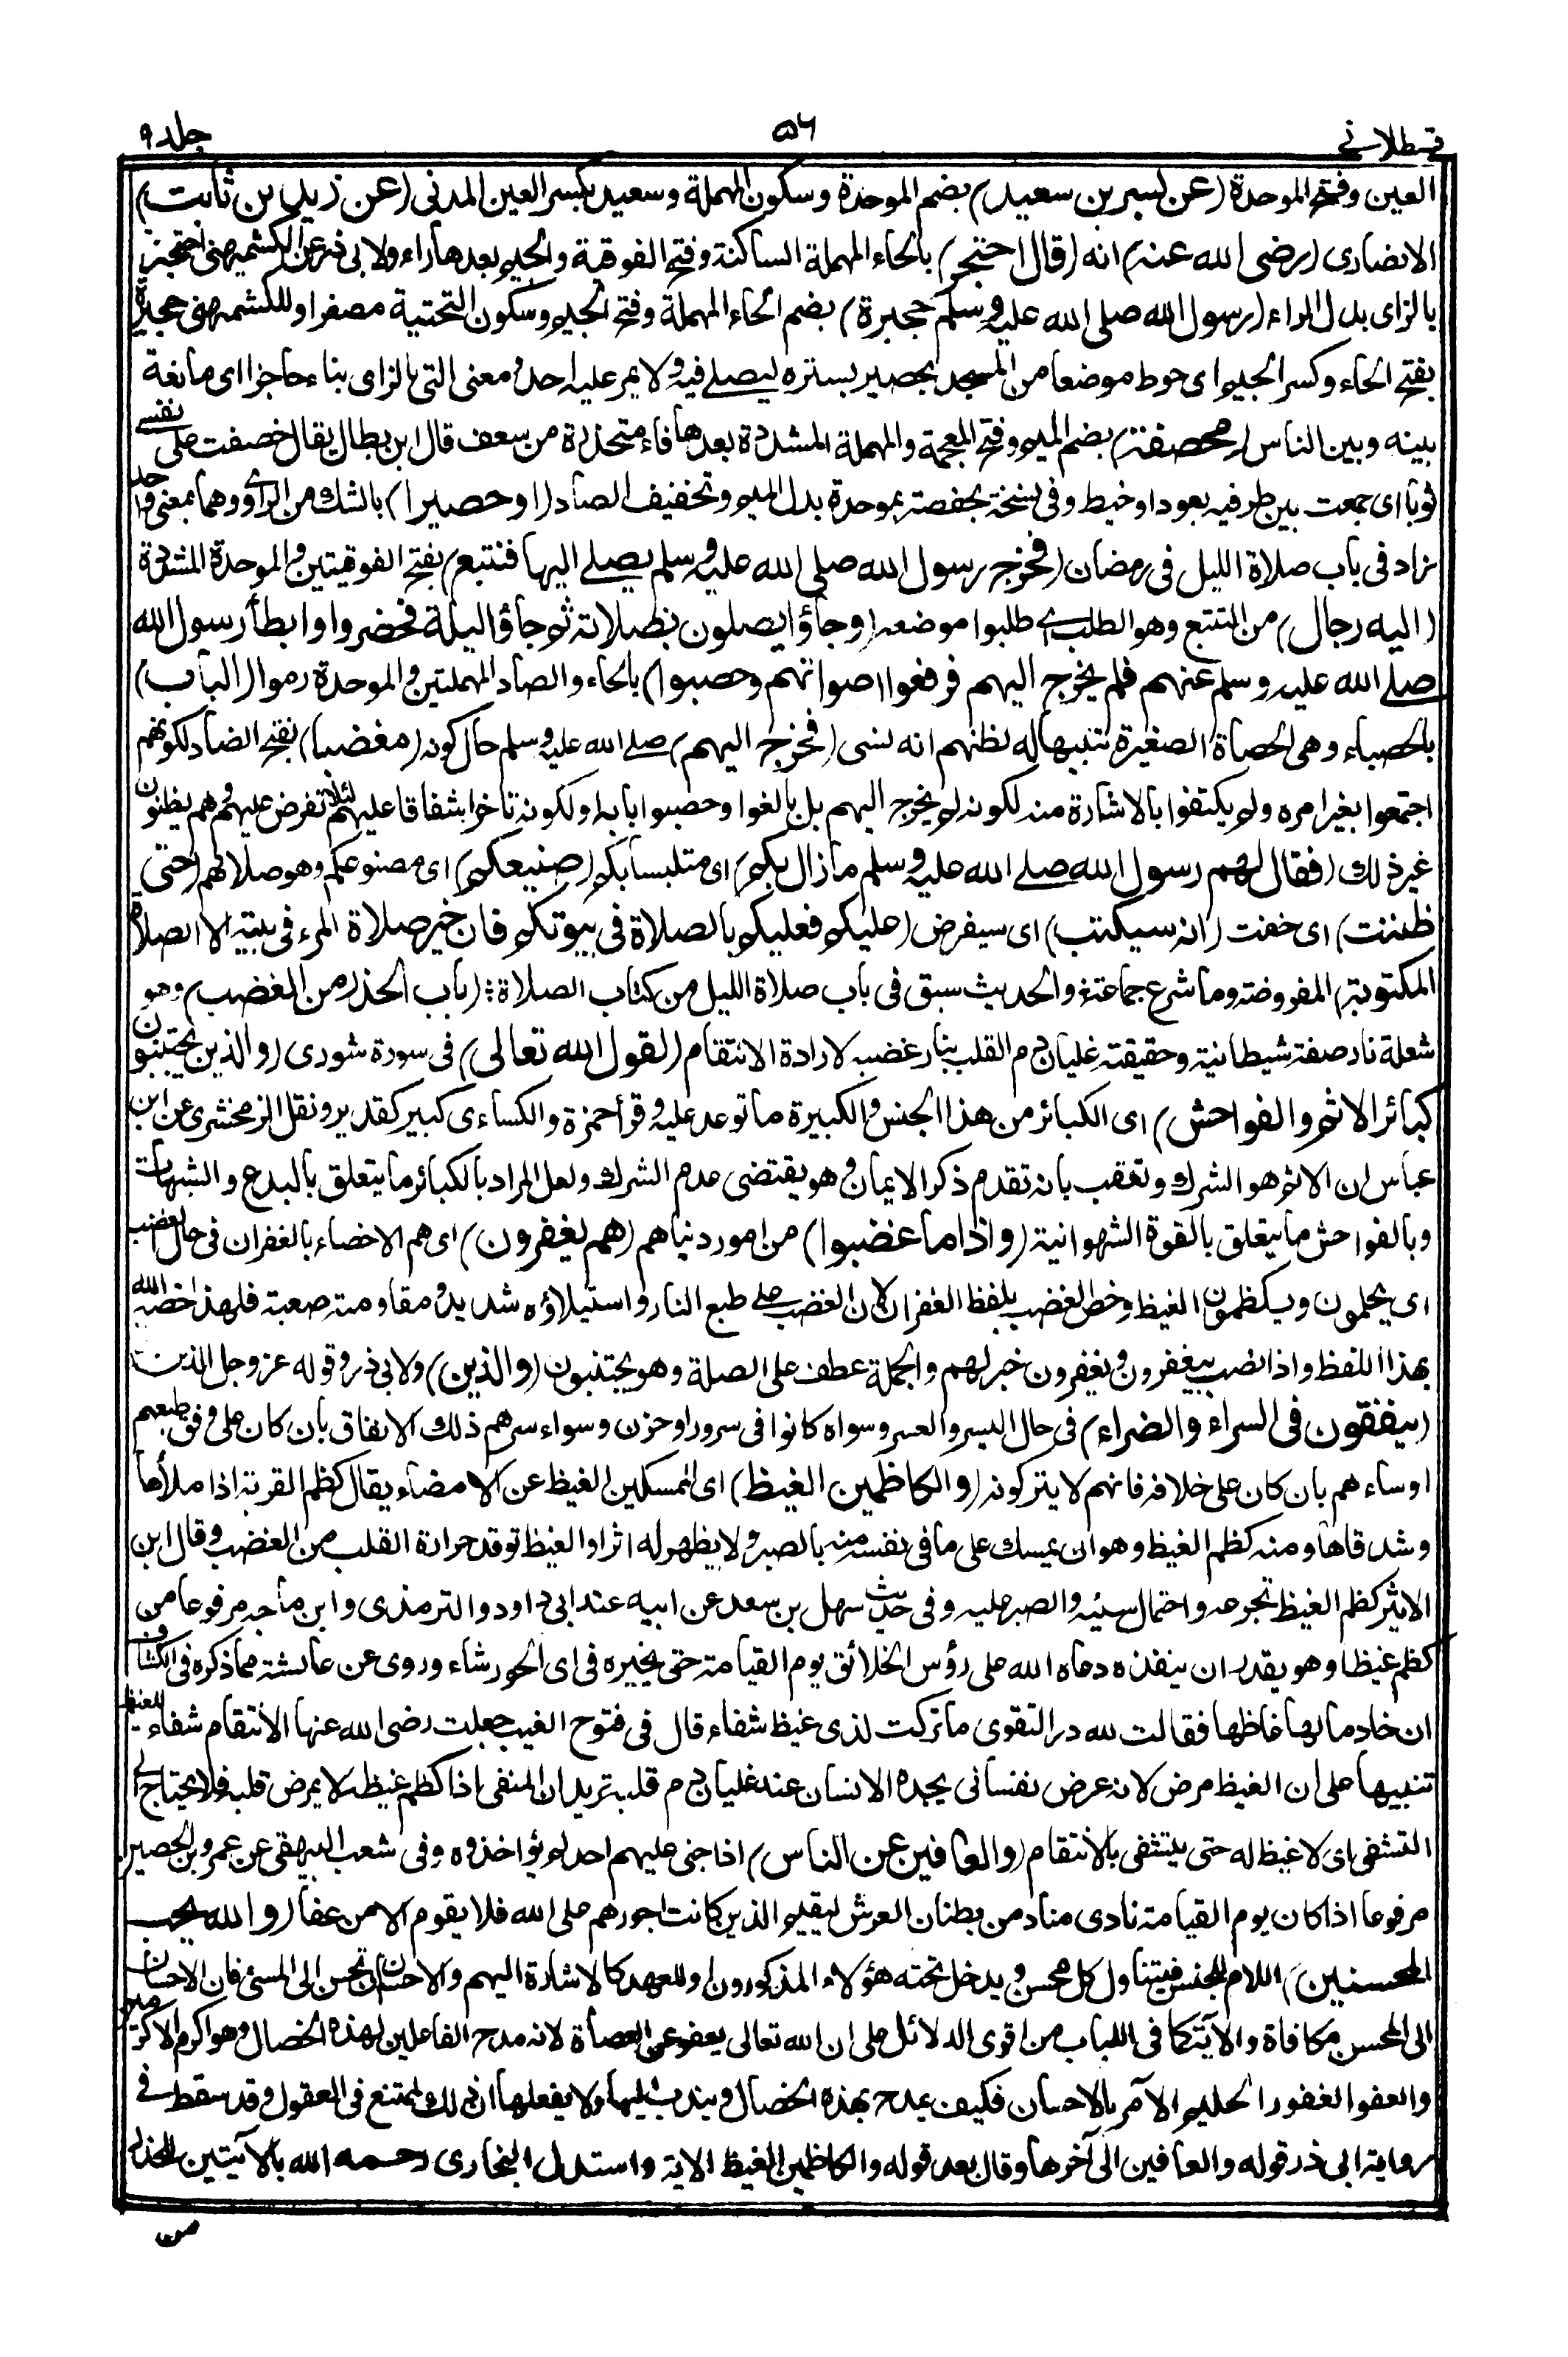 قسطلانے ٥٦ جلد ٩
العين وفتح الموحدة (عن بسر بن سعيد) بضم الموحدة وسكون المهملة وسعيد بكسر العين المدنى (عن زيد بن ثابت)
الانصارى (رضى الله عنه) انه (قال احتجر) بالحاء المهملة الساكنة وفتح الفوقية والجيم بعدها راء ولابى ذر عن الكشميهنى احتجز
بالزاى بدل الراء (رسول الله صلى الله عليه وسلم حجيرة) بضم الحاء المهملة وفتح الجيم وسكون التحتية مصغرا وللكشميهنى حجيرة
بفتح الحاء وكسر الجيم اى حوط موضعا من المسجد بحصير يستره ليصلے فيه ولا يمر عليه احد ومعنى التى بالزاى بناء حاجزا اى مانعة
بينه وبين الناس (مخصفة) بضم الميم وفتح المعجمة والمهملة المشددة بعدها فاء متخذة من سعف قال ابن بطال يقال خصفت على نفسے
ثوبا اى جمعت بين طرفيه بعود او خيط وفى نسخة بخصفة بموحدة بدل الميم وتخفيف الصاد (او حصيرا) بالشك من الراوى وهما بمعنى واحد
زاد فى باب صلاة الليل فى رمضان (فخرج رسول الله صلى الله عليه وسلم يصلے اليها فتتبع) بفتح الفوقيتين والموحدة المشددة
(اليه رجال) من التتبع وهو الطلب اے طلبوا موضعه (وجاؤا يصلون بصلاته ثم جاؤا ليلة فحضروا وابطأ رسول الله
صلے الله عليه وسلم عنهم فلم يخرج اليهم فرفعوا اصواتهم وحصبوا) بالحاء والصاد المهملتين والموحدة رموا (الباب)
بالحصباء وهى الحصاة الصغيرة تنبيها له لظنهم انه نسى (فخرج اليهم) صلے الله عليه وسلم حال كونه (مغضبا) بفتح الضاد لكونهم
اجتمعوا بغير امره ولم يكتفوا بالاشارة منه لكونه لم يخرج اليهم بل بالغوا وحصبوا بابه او لكونه تاخر اشفاقا عليهم لئلا تفرض عليهم وهم يظنون
غير ذلك (فقال لهم رسول الله صلے الله عليه وسلم ما زال بكم) اى متلبسا بكم (صنيعكم) اى مصنوعكم وهو صلاتهم (حتى
ظننت) اى خفت (انه سيكتب) اى سيفرض (عليكم فعليكم بالصلاة فى بيوتكم فان خير صلاة المرء فى بيته الا الصلاة
المكتوبة) المفروضة وما شرع جماعة والحديث سبق فى باب صلاة الليل من كتاب الصلاة (باب الحذر من الغضب) وهو
شعلة نار صفة شيطانية وحقيقته غليان دم القلب بنار غضبه لارادة الانتقام (لقول الله تعالى) فى سورة شورى (والذين يجتنبون
كبائر الاثم والفواحش) اى الكبائر من هذا الجنس والكبيرة ما توعد عليه وقرأ حمزة والكساءى كبير كقدير ونقل الزمخشرى عن ابن
عباس ان الاثم هو الشرك وتعقب بانه تقدم ذكر الايمان وهو يقتضى عدم الشرك ولعل المراد بالكبائر ما يتعلق بالبدع والشبهات
وبالفواحش ما يتعلق بالقوة الشهوانية (واذا ما غضبوا) من امور دنياهم (هم يغفرون) اى هم الاخصاء بالغفران فى حال الغضب
اى يحلمون ويكظمون الغيظ وخص الغضب بلفظ الغفران لان الغضب على طبع النار واستيلاؤه شديد ومقاومته صعبة فلهذا خصه الله
بهذا اللفظ واذا نصب بيغفرون ويغفرون خبر لهم والجملة عطف على الصلة وهو يجتنبون (والذين) ولابى ذر وقوله عز وجل الذين
(ينفقون فى السراء والضراء) فى حال اليسر والعسر وسواء كانوا فى سرور او حزن وسواء سرهم ذلك الانفاق بان كان على وفق طبعهم
او ساءهم بان كان على خلافه فانهم لا يتركونه (والكاظمين الغيظ) اى الممسكين الغيظ عن الامضاء يقال كظم القربة اذا ملأها
وشد فاها ومنه كظم الغيظ وهو ان يمسك على ما فى نفسه منه بالصبر ولا يظهر له اثرا والغيظ توقد حرارة القلب من الغضب وقال ابن
الاثير كظم الغيظ تجرعه واحتمال سببه والصبر عليه وفى حديث سهل بن سعد عن ابيه عند ابى داود والترمذى وابن ماجه مرفوعا من
كظم غيظا وهو يقدر ان ينفذه دعاه الله على رؤس الخلائق يوم القيامة حتى يخيره فى اى الحور شاء وروى عن عائشة مما ذكره فى الكشاف
ان خادما لها غاظها فقالت لله در التقوى ما تركت لذى غيظ شفاء قال فى فتوح الغيب جعلت رضى الله عنها الانتقام شفاء للغيظ
تنبيها على ان الغيظ مرض لانه عرض نفسانى يجده الانسان عند غليان دم قلبه تريد ان المتقى اذا كظم غيظه لا يمرض قلبه فلا يحتاج الى
التشفى اى لا غيظ له حتى يتشفى بالانتقام (والعافين عن الناس) اذا جنى عليهم احد لم يؤاخذوه وفى شعب البيهقى عن عمرو بن الحصين
مرفوعا اذا كان يوم القيامة نادى مناد من بطنان العرش ليقم الذين كانت اجورهم على الله فلا يقوم الا من عفا (والله يحب
المحسنين) اللام للجنس فيتناول كل محسن ويدخل تحته هؤلاء المذكورون او للعهد كالاشارة اليهم والاحسان ان تحسن الى المسئ فان الاحسان
الى المحسن مكافاة والآية كما فى اللباب من اقوى الدلائل على ان الله تعالى يعفو عن العصاة لانه مدح الفاعلين لهذه الخصال وهو اكرم الاكرمين
والعفو الغفور الحليم الآمر بالاحسان فكيف يمدح بهذه الخصال ويندب اليها ولا يفعلها ان ذلك لممتنع فى العقول وقد سقط فے
رواية ابى ذر قوله والعافين الى آخرها وقال بعد قوله والكاظمين الغيظ الاية واستدل البخارى رحمه الله بالآيتين للحذر
من